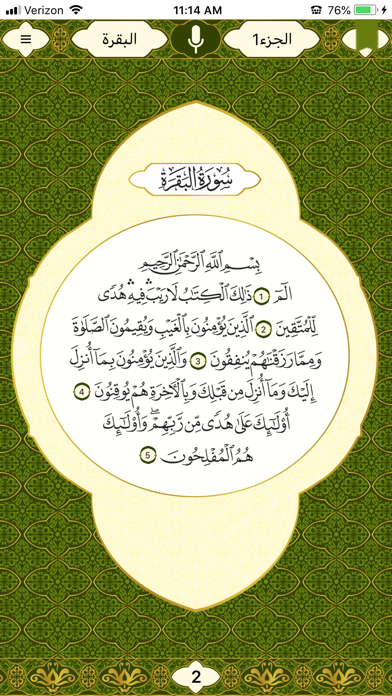 Verizon 11:14 AM 76%
الجزء1 البقرة
سُورَةُ البَقَرَةِ
بِسْمِ اللَّهِ الرَّحْمَٰنِ الرَّحِيمِ
الٓمٓ 1 ذَٰلِكَ الْكِتَٰبُ لَا رَيْبَ ۛ فِيهِ ۛ هُدًى
لِّلْمُتَّقِينَ 2 الَّذِينَ يُؤْمِنُونَ بِالْغَيْبِ وَيُقِيمُونَ الصَّلَوٰةَ
وَمِمَّا رَزَقْنَٰهُمْ يُنفِقُونَ 3 وَالَّذِينَ يُؤْمِنُونَ بِمَا أُنزِلَ
إِلَيْكَ وَمَا أُنزِلَ مِن قَبْلِكَ وَبِالْآخِرَةِ هُمْ يُوقِنُونَ 4
أُولَٰئِكَ عَلَىٰ هُدًى مِّن رَّبِّهِمْ ۖ وَأُولَٰئِكَ
هُمُ الْمُفْلِحُونَ 5
2